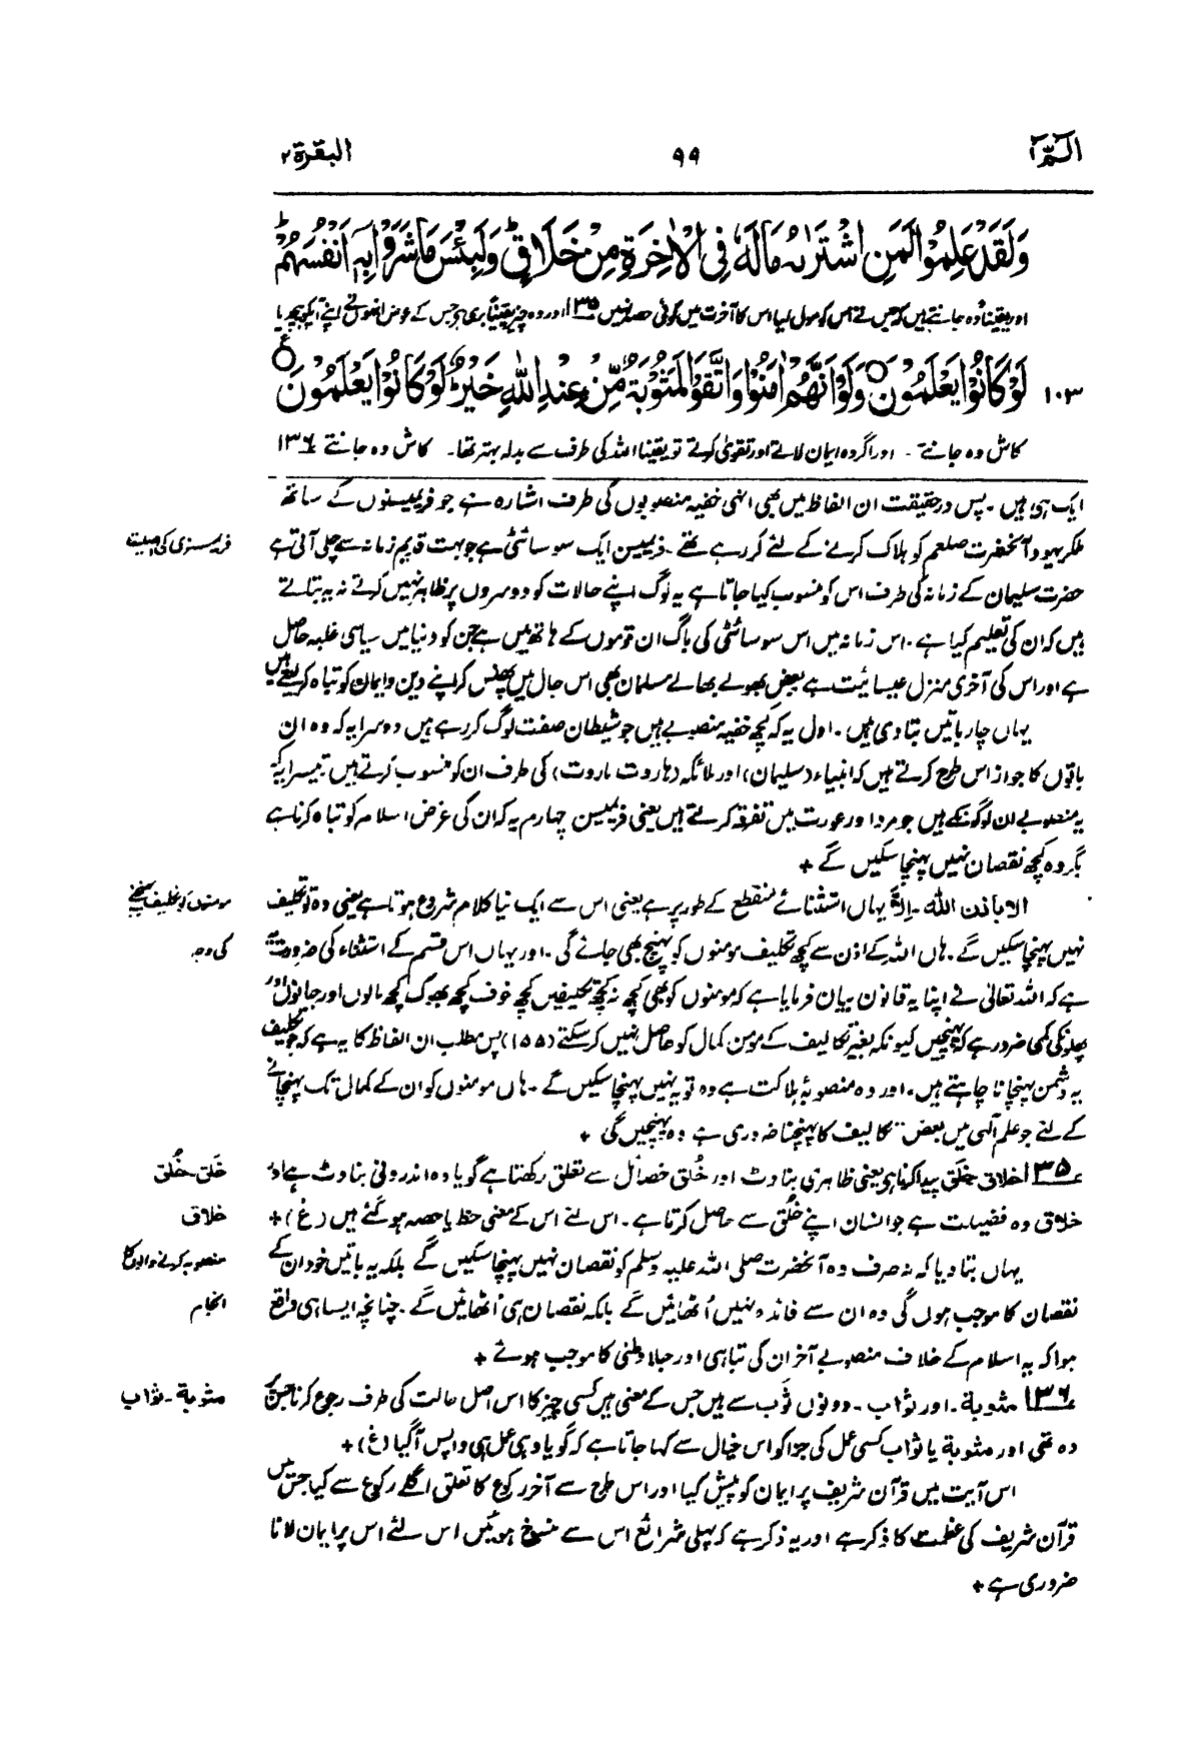 الٓمّٓ ۱
۹۹
البقرة ۲
وَلَقَدْ عَلِمُوْا لَمَنِ اشْتَرٰىهُ مَا لَهٗ فِی الْاٰخِرَةِ مِنْ خَلَاقٍ ؕ وَلَبِئْسَ مَا شَرَوْا بِهٖۤ اَنْفُسَهُمْ ؕ
اور یقیناً وہ جانتے ہیں کہ جس نے اس کو مول لیا اس کا آخرت میں کوئی حصہ نہیں ۱۳۵ اور وہ چیز یقیناً بری ہے جس کے عوض انہوں نے اپنے آپکو بیچ دیا
۱۰۳ لَوْ كَانُوْا یَعْلَمُوْنَ ○ وَلَوْ اَنَّهُمْ اٰمَنُوْا وَاتَّقَوْا لَمَثُوْبَةٌ مِّنْ عِنْدِ اللّٰهِ خَیْرٌ ؕ لَوْ كَانُوْا یَعْلَمُوْنَ ○ ع
کاش وہ جانتے ۔ اور اگر وہ ایمان لاتے اور تقویٰ کرتے تو یقیناً اللہ کی طرف سے بدلہ بہتر تھا۔ کاش وہ جانتے ۱۳۶
ایک ہی ہیں ۔ پس درحقیقت ان الفاظ میں بھی انہی خفیہ منصوبوں کی طرف اشارہ ہے جو فریمیسنوں کے ساتھ
ملکر یہود آنحضرت صلعم کو ہلاک کرنے کے لئے کر رہے تھے ۔ فریمیسن ایک سوسائٹی ہے جو بہت قدیم زمانہ سے چلی آتی ہے
فریمیسنری کی اصلیت
حضرت سلیمان کے زمانہ کی طرف اس کو منسوب کیا جاتا ہے یہ لوگ اپنے حالات کو دوسروں پر ظاہر نہیں کرتے نہ یہ بتاتے
ہیں کہ ان کی تعلیم کیا ہے ۔ اس زمانہ میں اس سوسائٹی کی باگ ان قوموں کے ہاتھ میں ہے جن کو دنیا میں سیاسی غلبہ حاصل
ہے اور اس کی آخری منزل عیسائیت ہے بعض بھولے بھالے مسلمان بھی اس جال میں پھنس کر اپنے دین و ایمان کو تباہ کر لیتے ہیں
یہاں چار باتیں بتا دی ہیں ۔ اول یہ کہ کچھ خفیہ منصوبے ہیں جو شیطان صفت لوگ کر رہے ہیں دوسرا یہ کہ وہ ان
باتوں کا جواز اس طرح کرتے ہیں کہ انبیاء (سلیمان) اور ملائکہ (ہاروت ماروت) کی طرف ان کو منسوب کرتے ہیں تیسرا یہ کہ
یہ منصوبے ان لوگوں کے ہیں جو مرد اور عورت میں تفرقہ کرتے ہیں یعنی فریمیسن چہارم یہ کہ ان کی غرض اسلام کو تباہ کرنا ہے
مگر وہ کچھ نقصان نہیں پہنچا سکیں گے +
الا باذن اللہ ۔ اِلّا یہاں استثنائے منقطع کے طور پر ہے یعنی اس سے ایک نیا کلام شروع ہوتا ہے یعنی وہ تو تکلیف
مومنوں کو تکلیف پہنچنے
نہیں پہنچا سکیں گے ۔ ہاں اللہ کے اذن سے کچھ تکلیف مومنوں کو پہنچ بھی جائے گی ۔ اور یہاں اس قسم کے استثناء کی ضرورت یہ
کی وجہ
ہے کہ اللہ تعالیٰ نے اپنا یہ قانون بیان فرمایا ہے کہ مومنوں کو بھی کچھ نہ کچھ تکلیفیں کچھ خوف کچھ بھوک کچھ مالوں اور جانوں اور
پھلوں کی کمی ضرور ہے کہ پہنچیں کیونکہ بغیر تکالیف کے مومن کمال کو حاصل نہیں کر سکتے (۱۵۵) پس مطلب ان الفاظ کا یہ ہے کہ جو تکلیف
یہ دشمن پہنچانا چاہتے ہیں ۔ اور وہ منصوبۂ ہلاکت ہے وہ تو یہ نہیں پہنچا سکیں گے ۔ ہاں مومنوں کو ان کے کمال تک پہنچانے
کے لئے جو علم الٰہی میں بعض تکالیف کا پہنچنا ضروری ہے وہ پہنچیں گی +
۱۳۵ خلاق ۔ خَلق پیدا کرنا ہی یعنی ظاہری بناوٹ اور خُلق خصائل سے تعلق رکھتا ہے گویا وہ اندرونی بناوٹ ہے اور
خَلق ۔ خُلق
خلاق وہ فضیلت ہے جو انسان اپنے خُلق سے حاصل کرتا ہے ۔ اس لئے اس کے معنی حظ یا حصہ ہو گئے ہیں (غ) +
خلاق
یہاں بتا دیا کہ نہ صرف وہ آنحضرت صلی اللہ علیہ وسلم کو نقصان نہیں پہنچا سکیں گے بلکہ یہ باتیں خود ان کے
منصوبہ کرنے والوں کا
نقصان کا موجب ہوں گی وہ ان سے فائدہ نہیں اُٹھائیں گے بلکہ نقصان ہی اُٹھائیں گے ۔ چنانچہ ایسا ہی واقع
انجام
ہوا کہ یہ اسلام کے خلاف منصوبے آخر ان کی تباہی اور جلا وطنی کا موجب ہوئے +
۱۳۶ مثوبة ۔ اور ثواب ۔ دونوں ثَوب سے ہیں جس کے معنی ہیں کسی چیز کا اس اصل حالت کی طرف رجوع کرنا جس پر
مثوبة ۔ ثواب
وہ تھی اور مثوبة یا ثواب کسی عمل کی جزا کو اس خیال سے کہا جاتا ہے کہ گویا وہی عمل ہی واپس آگیا (غ) +
اس آیت میں قرآن شریف پر ایمان کو پیش کیا اور اس طرح سے آخر رکوع کا تعلق اگلے رکوع سے کیا جس میں
قرآن شریف کی عظمت کا ذکر ہے اور یہ ذکر ہے کہ پہلی شرائع اس سے منسوخ ہوئیں اس لئے اس پر ایمان لانا
ضروری ہے +